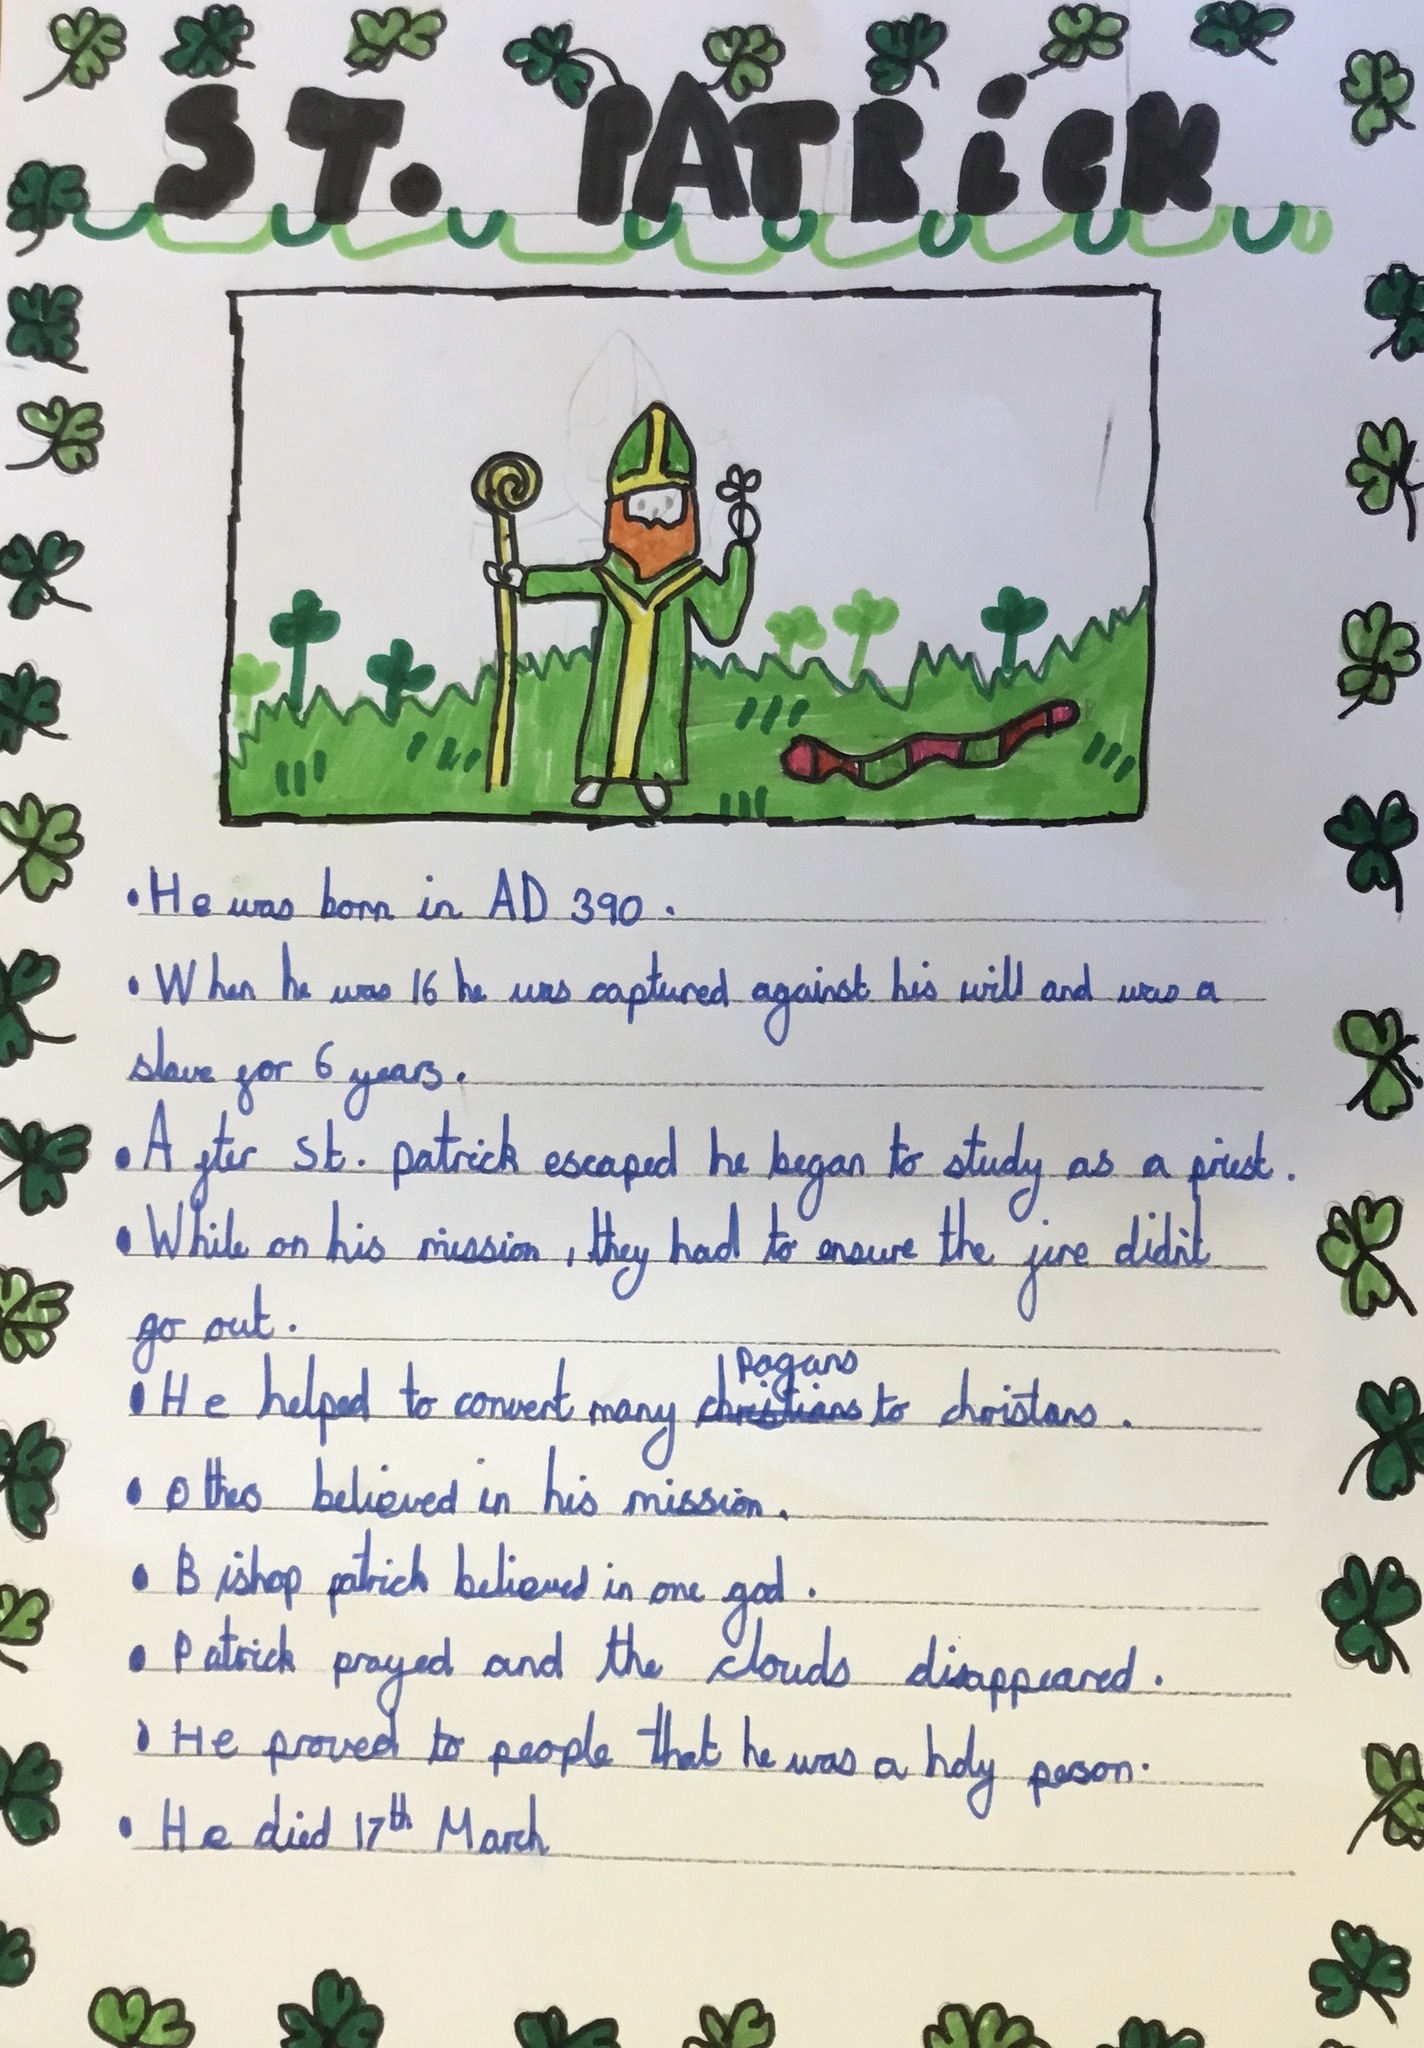 ST. PATRiCK
• He was born in AD 390.
• When he was 16 he was captured against his will and was a
slave for 6 years.
• After St. patrick escaped he began to study as a priest.
• While on his mission, they had to ensure the fire didn't
go out.
pagans
• He helped to convert many christians to christans.
• Othes believed in his mission.
• Bishop patrick believed in one god.
• Patrick prayed and the clouds disappeared.
• He proved to people that he was a holy peson.
• He died 17th March